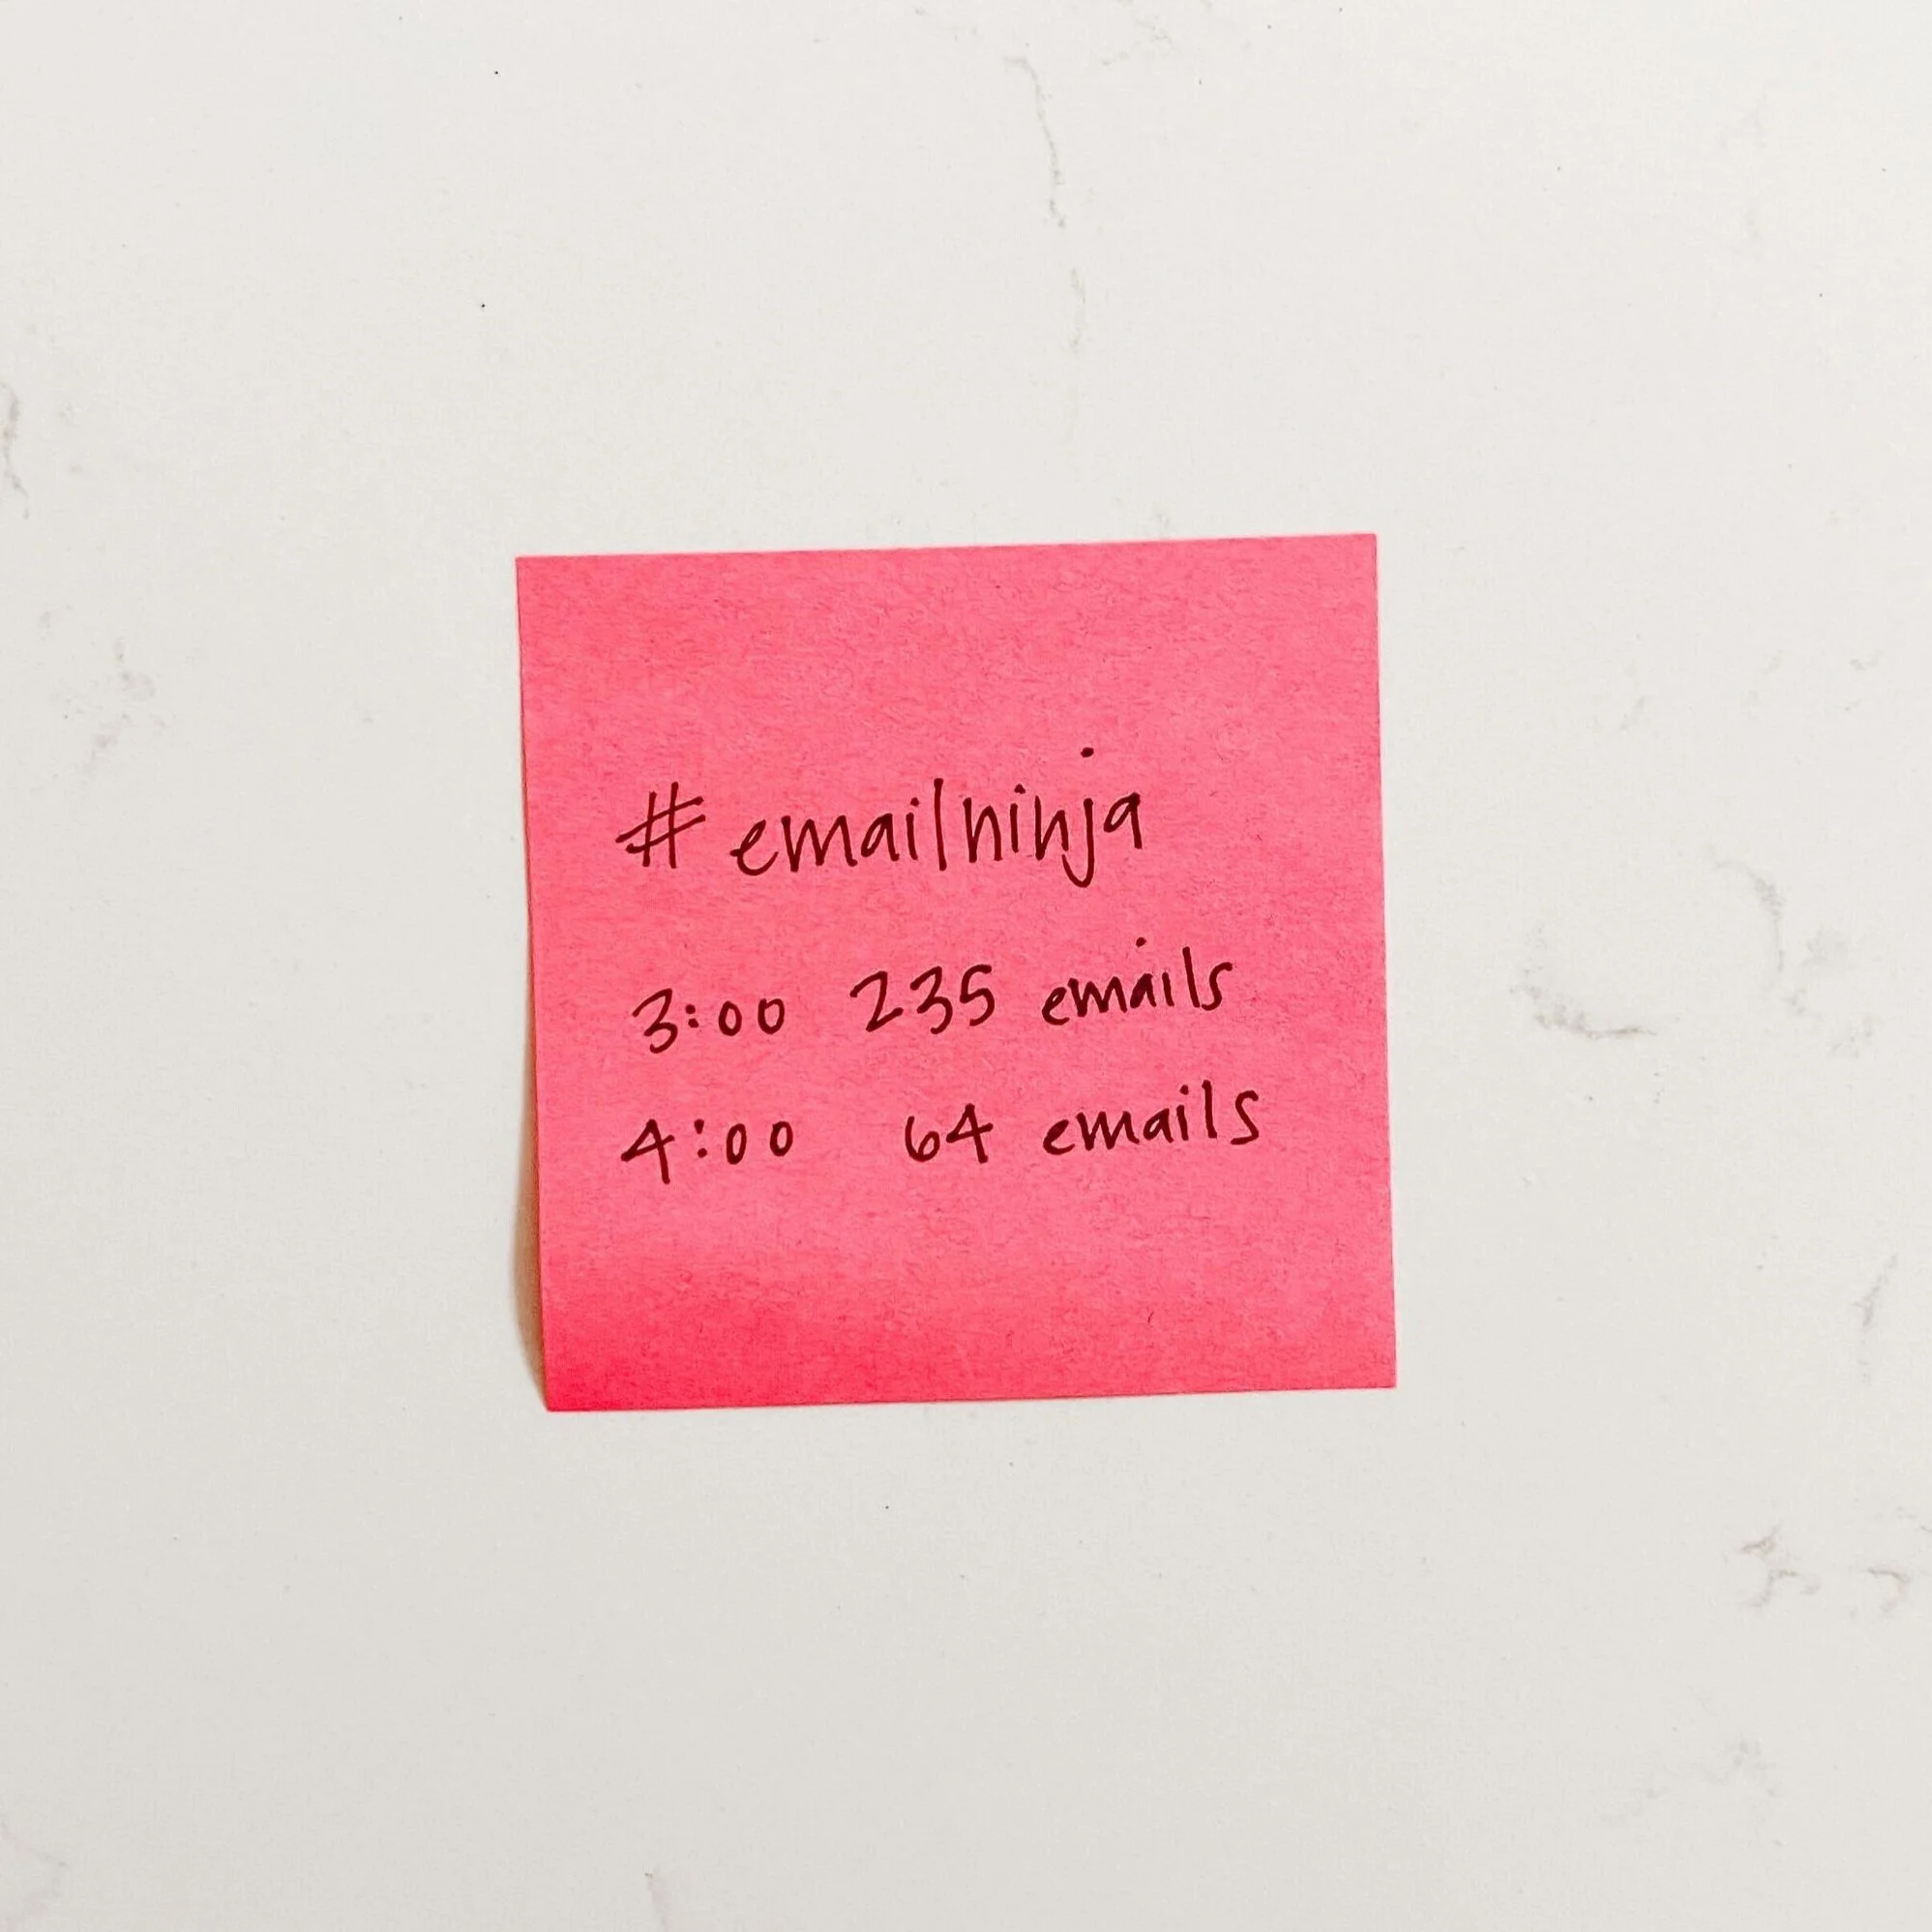 #emailninja
3:00 235 emails
4:00 64 emails